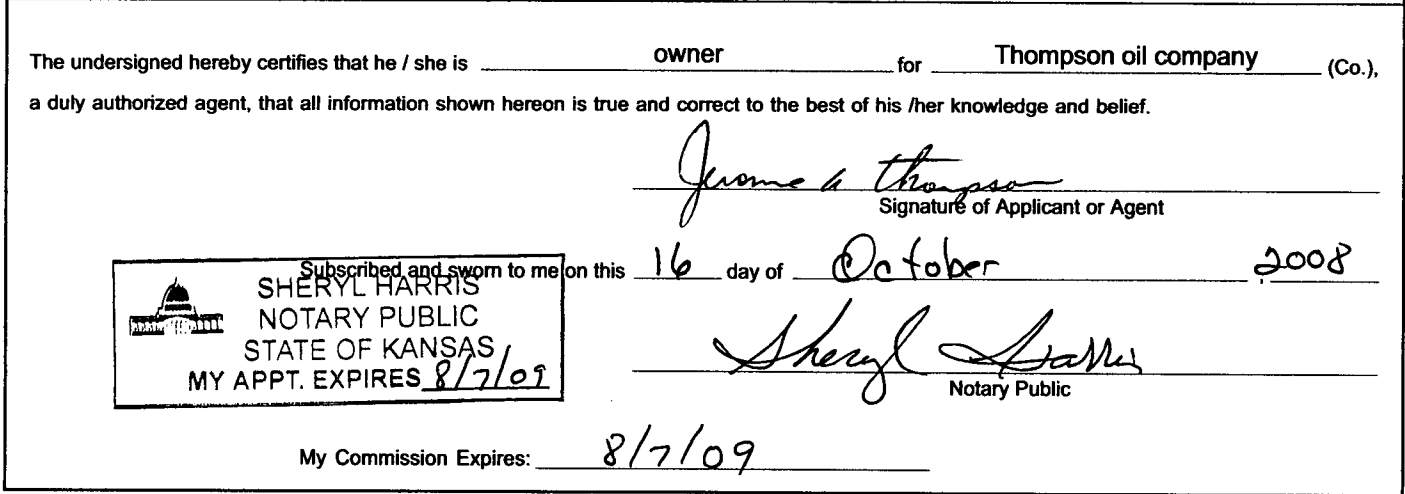 The undersigned hereby certifies that he / she is owner for Thompson oil company (Co.),
a duly authorized agent, that all information shown hereon is true and correct to the best of his /her knowledge and belief.
Jerome A Thompson
Signature of Applicant or Agent
Subscribed and sworn to me on this 16 day of October, 2008
SHERYL HARRIS
NOTARY PUBLIC
STATE OF KANSAS
MY APPT. EXPIRES 8/7/09
Sheryl Harris
Notary Public
My Commission Expires: 8/7/09